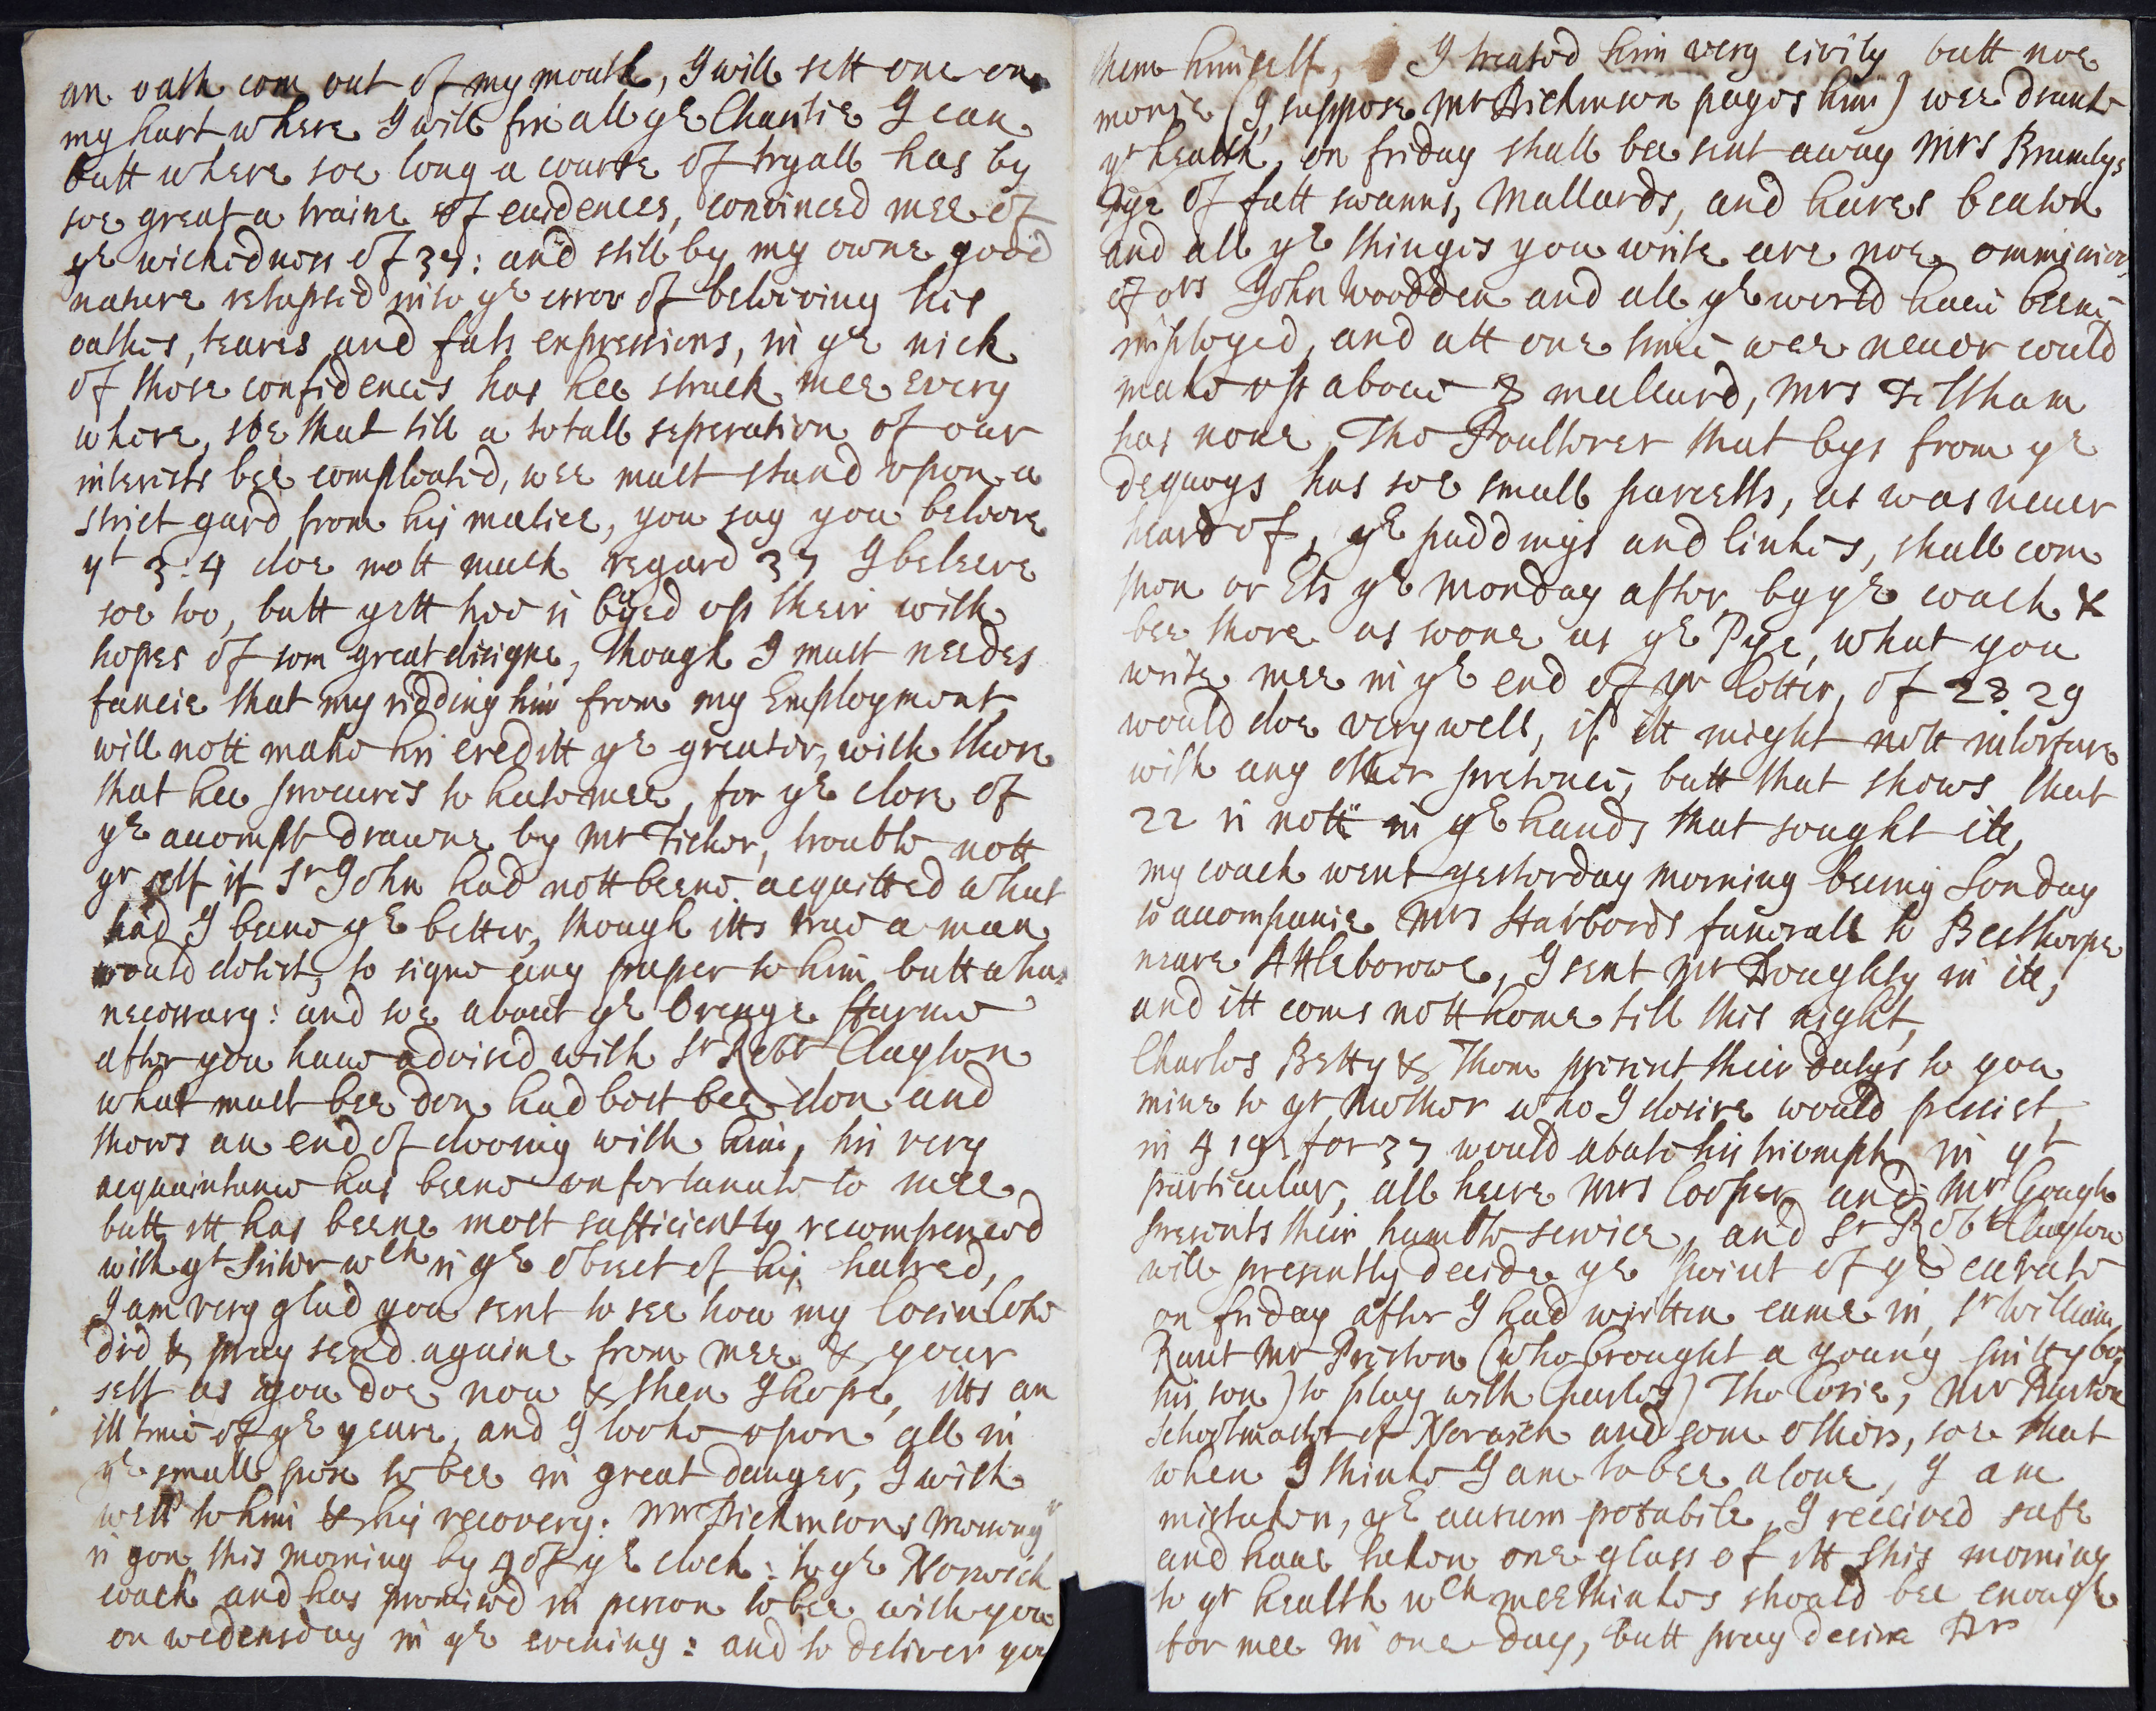 an oath com out of my mouth, I will sett one on
my hart where I will fix all ye Charitie I can
butt where soe long a course of tryall has by
soe great a traine of euidences, convinced mee of
ye wickedness of 37: and still by my owne good
nature relapsed into ye error of beleiving his
oathes, teares and fals expressions, in ye nick
of those confidences has hee struck mee every
where, soe that till a totall seperation of our
interests bee compleated, wee must stand upon a
strict gard from his malice, you say you beleeve
yt 3:4 doe nott much regard 37 I beleeve
soe too, butt yett hee is boyed upp their with
hopes of som great designe, though I must needes
fancie that my ridding him from my Employment
will nott make his creditt ye greater, with those
that hee procures to hate mee, for ye close of
ye accompt drawne by Mr Ticher, trouble nott
yr self if Sr John had nott beene acquitted what
had I beene ye better, though itts true a man
would detest to signe any paper to him butt whats
necessary: and soe about ye Orenge
after you haue advised with Sr Robt Clayton
what must bee don had best bee don and
theres an end of dooing with him, his very
acquaintance has beene unfortunate to mee
butt itt has beene most sufficiently recompensed
with yt Sister wch is ye obiect of his hatred,
I am very glad you sent to see how my Cosin Coke
did & pray send againe from mee & your
self as you doe now & then I hope, itts an
ill time of ye yeare, and I looke upon all in
ye small pox to bee in great danger, I wish
well to him & his recovery. Mr Dickinsons
is gon this morning by 4 of ye clock: to ye Norwich
coach and has promised in person to bee with you
on wedensday in ye evening: and to deliver you
them himself, I treated him very civily butt noe
monie (I suppose Mr Dickinson payes him) wee drank
yr health, on friday shall bee sent away Mrs Brumlys
Pye of fatt swanns, Mallards, and hares beaten
and all ye thinges you write are noe ommission
of ors John Woodden and all ye world haue beene
imployed, and att one time wee neuer could
make upp aboue 3 mallard, Mrs Feltham
has none, The Poulterer that bys from ye
dequoys has soe small parcells, as was neuer
heard of, ye puddings and linkes, shall com
then or Els ye Monday after by ye coach &
bee there as soone as ye Pye, what you
write mee in ye end of yr letter, of 28 29
would doe very well, if itt might nott interfare
with any other pretence, butt that shows that
22 is nott in ye hands that sought itt,
my coach went yesterday morning being Sonday
to accompanie Mrs Harbords funerall to Beesthorpe
neare Attleborowe, I sent Mr Doughty in itt,
and itt coms nott home till this night,
Charles Betty & Thom present their dutys to you
mine to yr Mother who I desire would persist
in 4 19 for 37 would abate his triumph in yt
particular, all heere Mrs Cooper and Mr Gough
presents their humble service, and Sr Robt Clayton
will presently decide ye point of ye curate
on friday after I had written came in, Sr William
Rant Mr Preston (who brought a young
his son) to play with Charles) Tho Corie, Mr Burton
schoolmaster of Norwich and som others, soe that
when I thinke I am to bee alone, I am
mistaken, ye aurum potabile, I received safe
and haue taken one glass of itt this morning
to yr health wch meethinkes should bee enough
for mee in one day, butt pray desire Dr